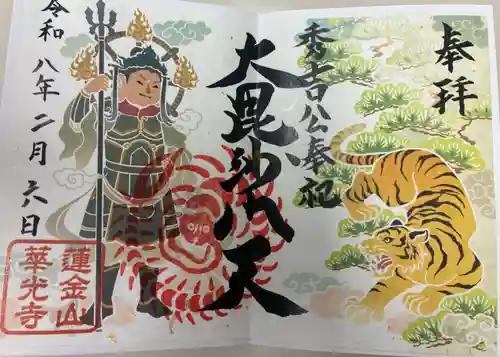 奉拝
秀吉公奉祀
大毘沙門天
令和八年二月六日
蓮金山
華光寺